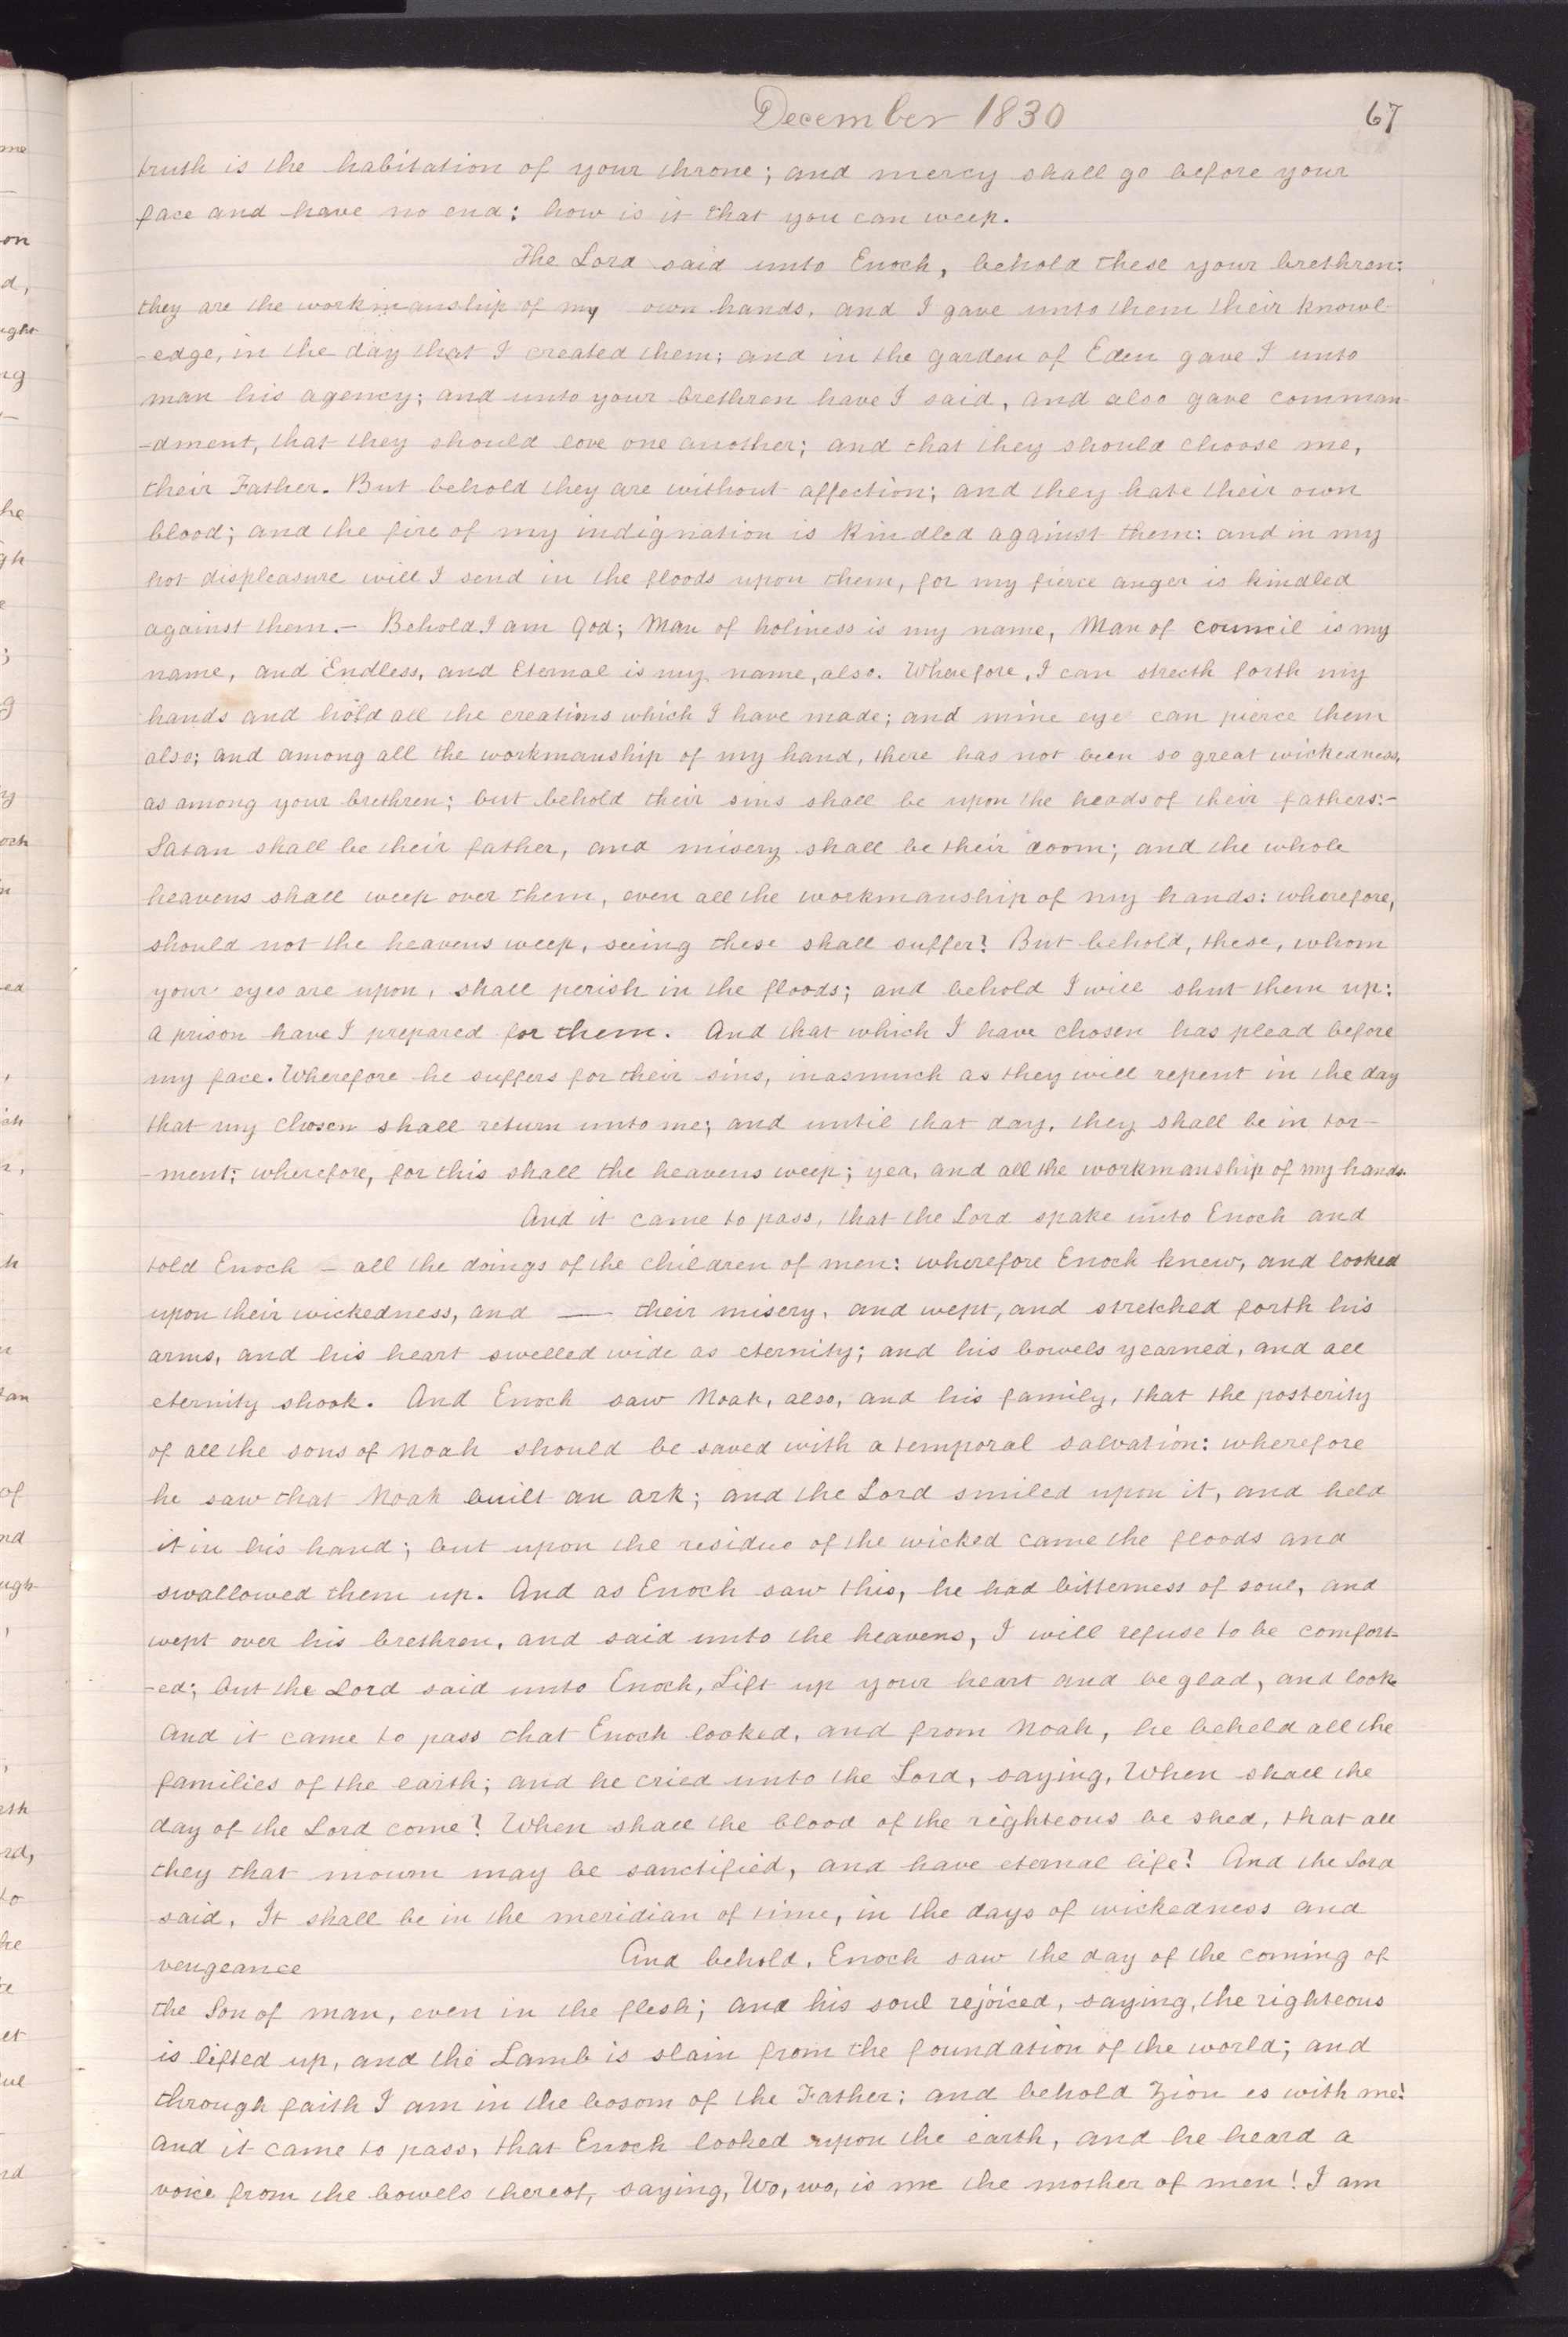 December 1830
67
truth is the habitation of your throne; and mercy shall go before your
face and have no end: how is it that you can weep.
The Lord said unto Enoch, behold these your brethren:
they are the workmanship of my own hands, and I gave unto them their knowl-
-edge, in the day that I created them; and in the garden of Eden gave I unto
man his agency; and unto your brethren have I said, and also gave comman-
-dment, that they should love one another; and that they should choose me,
their Father. But behold they are without affection; and they hate their own
blood; and the fire of my indignation is kindled against them: and in my
hot displeasure will I send in the floods upon them, for my fierce anger is kindled
against them.- Behold I am God; Man of holiness is my name, Man of council is my
name, and Endless, and Eternal is my name, also. Wherefore, I can strecth forth my
hands and hold all the creations which I have made; and mine eye can pierce them
also; and among all the workmanship of my hand, there has not been so great wickedness,
as among your brethren; but behold their sins shall be upon the heads of their fathers:-
Satan shall be their father, and misery shall be their doom; and the whole
heavens shall weep over them, even all the workmanship of my hands: wherefore,
should not the heavens weep, seeing these shall suffer? But behold, these, whom
your eyes are upon, shall perish in the floods; and behold I will shut them up:
a prison have I prepared for them. And that which I have chosen has plead before
my face. Wherefore he suffers for their sins, inasmuch as they will repent in the day
that my Chosen shall return unto me; and until that day, they shall be in tor-
-ment; wherefore, for this shall the heavens weep; yea, and all the workmanship of my hands.
And it came to pass, that the Lord spake unto Enoch and
told Enoch - all the doings of the children of men: wherefore Enoch knew, and looked
upon their wickedness, and — their misery, and wept, and stretched forth his
arms, and his heart swelled wide as eternity; and his bowels yearned, and all
eternity shook. And Enoch saw Noah, also, and his family, that the posterity
of all the sons of Noah should be saved with a temporal salvation: wherefore
he saw that Noah built an ark; and the Lord smiled upon it, and held
it in his hand; but upon the residue of the wicked came the floods and
swallowed them up. And as Enoch saw this, he had bitterness of soul, and
wept over his brethren, and said unto the heavens, I will refuse to be comfort-
-ed; but the Lord said unto Enoch, Lift up your heart and be glad, and look.
And it came to pass that Enoch looked, and from Noah, he beheld all the
families of the earth; and he cried unto the Lord, saying, When shall the
day of the Lord come? When shall the blood of the righteous be shed, that all
they that mourn may be sanctified, and have eternal life? And the Lord
said, It shall be in the meridian of time, in the days of wickedness and
vengeance And behold, Enoch saw the day of the coming of
the Son of man, even in the flesh; and his soul rejoiced, saying, the righteous
is lifted up, and the Lamb is slain from the foundation of the world; and
through faith I am in the bosom of the Father: and behold Zion is with me!
And it came to pass, that Enoch looked upon the earth, and he heard a
voice from the bowels thereof, saying, Wo, wo, is me the mother of men! I am